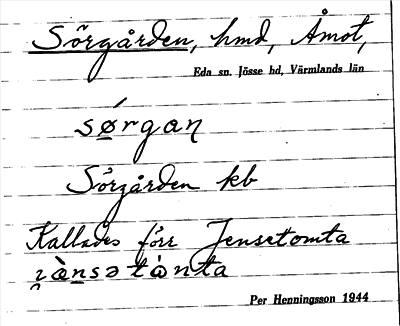 Sörgården, hmd, Åmot,
Eda sn. Jösse hd, Värmlands län
sǿrgaɳ
Sörgården kb
Kallades förr Jensetomta
i̯ànsətὼnta
Per Henningsson 1944